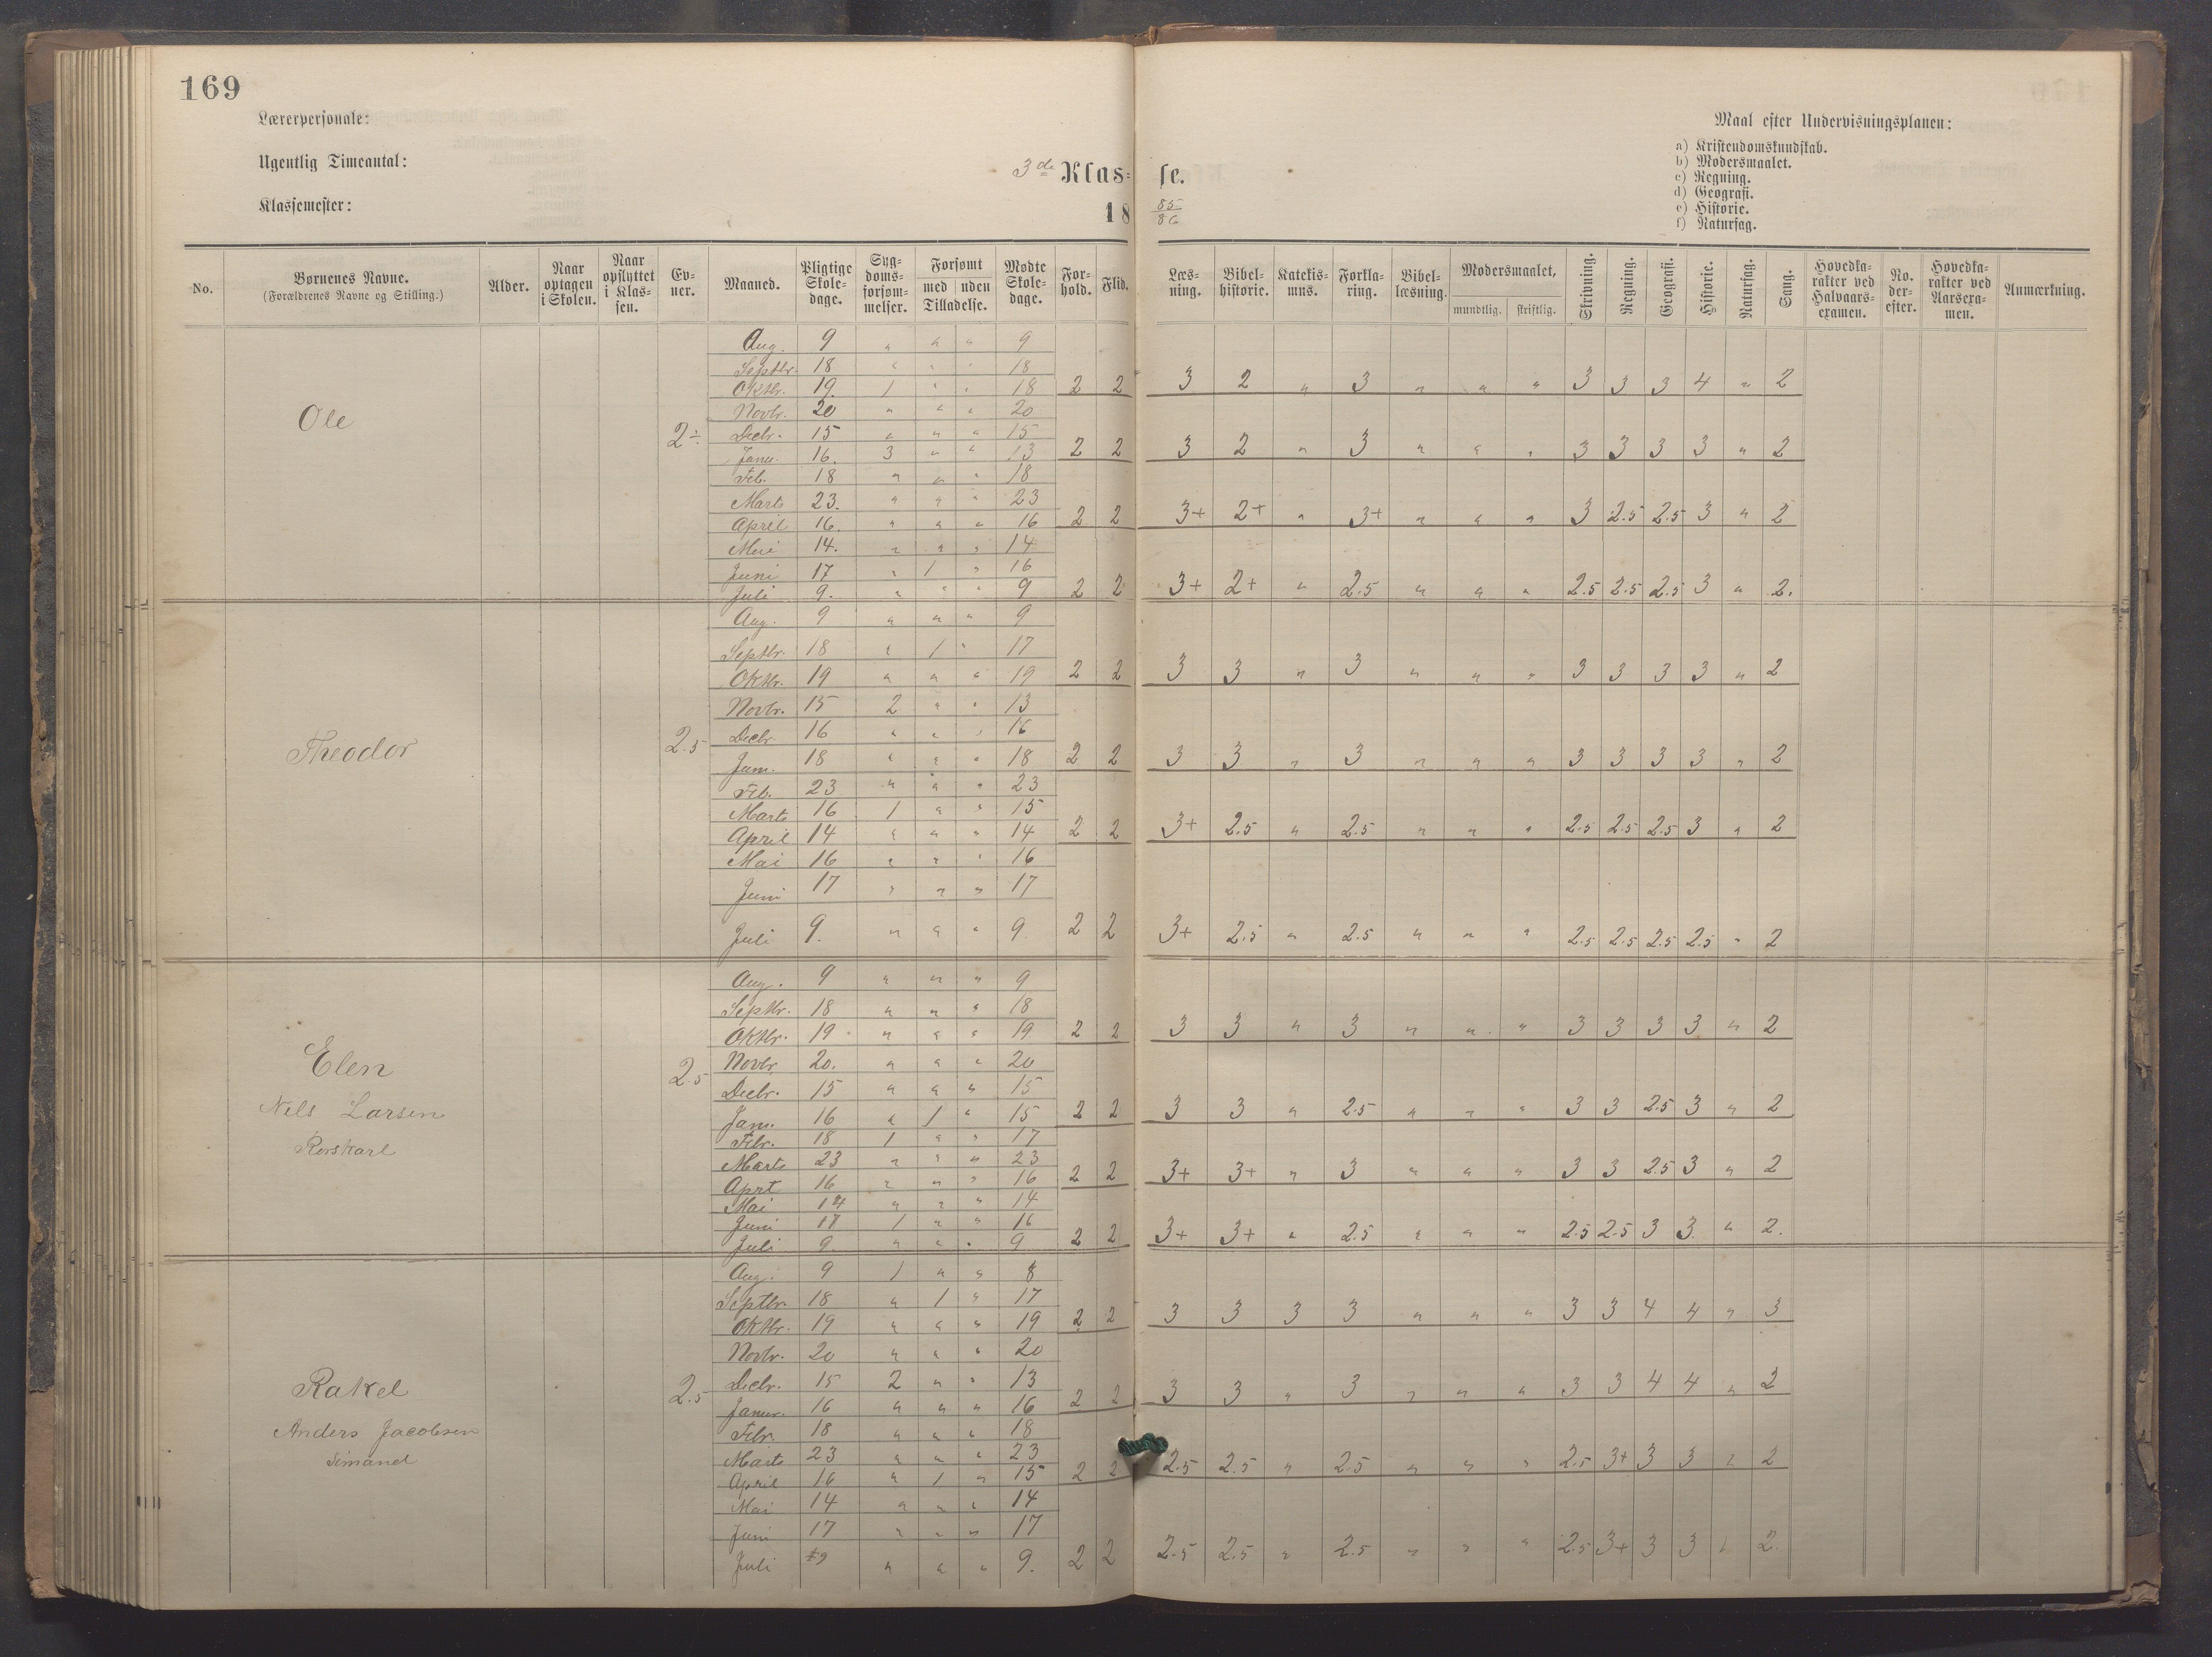 169
Lærerpersonale:
Ugentlig Timeantal:
Klassemester:
3de Klas= se.
18 85/86
Maal efter Undervisningsplanen:
a) Kristendomskundskab.
b) Modersmaalet.
c) Regning.
d) Geografi.
e) Historie.
f) Naturfag.
No. | Børnenes Navne. (Forældrenes Navne og Stilling.) | Alder. | Naar optagen i Skolen. | Naar opflyttet i Klassen. | Evner. | Maaned. | Pligtige Skoledage. | Sygdomsforsømmelser. | Forsømt med | uden Tilladelse. | Mødte Skoledage. | Forhold. | Flid. | Læsning. | Bibelhistorie. | Katekismus. | Forklaring. | Bibellæsning. | Modersmaalet, mundtlig. | skriftlig. | Skrivning. | Regning. | Geografi. | Historie. | Naturfag. | Sang. | Hovedkarakter ved Halvaarsexamen. | No. derefter. | Hovedkarakter ved Aarsexamen. | Anmærkning.
Ole 2÷
Aug. 9 " " " 9
Septbr. 18 " " " 18
Oktbr. 19. 1 " " 18 2 2 3 2 " 3 " " " 3 3 3 4 " 2
Novbr. 20 " " " 20
Decbr. 15 " " " 15
Janu. 16. 3 " " 13 2 2 3 2 " 3 " " " 3 3 3 3 " 2
Feb. 18 " " " 18
Marts 23. " " " 23
April 16. " " " 16 2 2 3+ 2+ " 3+ " " " 3 2.5 2.5 3 " 2
Mai 14. " " " 14
Juni 17 " 1 " 16
Juli 9. " " " 9 2 2 3+ 2+ " 2.5 " " " 2.5 2.5 2.5 3 " 2.
Theodor 2.5
Aug. 9 " " " 9
Septbr. 18 " 1 " 17
Oktbr. 19 " " " 19 2 2 3 3 " 3 " " " 3 3 3 3 " 2
Novbr. 15 2 " " 13
Decbr. 16 " " " 16
Jan. 18 " " " 18 2 2 3 3 " 3 " " " 3 3 3 3 " 2
Feb. 23 " " " 23
Marts 16 1 " " 15
April 14 " " " 14 2 2 3+ 2.5 " 2.5 " " " 2.5 2.5 2.5 3 " 2
Mai 16 " " " 16
Juni 17 " " " 17
Juli 9. " " " 9 2 2 3+ 2.5 " 2.5 " " " 2.5 2.5 2.5 2.5 " 2
Elen
Nels Larsen
Rorskarl 2.5
Aug. 9 " " " 9
Septbr. 18 " " " 18
Oktbr. 19 " " " 19 2 2 3 3 " 3 " " " 3 3 3 3 " 2
Novbr. 20. " " " 20
Decbr. 15 " " " 15
Jan. 16 " 1 " 15 2 2 3 3 " 2.5 " " " 3 3 2.5 3 " 2
Febr. 18 1 " " 17
Marts 23 " " " 23
April 16 " " " 16 2 2 3+ 3+ " 3 " " " 3 3 2.5 3 " 2
Mai 14 " " " 14
Juni 17 1 " " 16
Juli 9 " " " 9 2 2 3+ 3+ " 2.5 " " " 2.5 2.5 3 3. " 2.
Rakel
Anders Jacobsen
Simanel 2.5
Aug. 9 1 " " 8
Septbr. 18 " 1 " 17
Oktbr. 19 " " " 19 2 2 3 3 3 3 " " " 3 3 4 4 " 3
Novbr. 20 " " " 20
Decbr. 15 2 " " 13
Januar. 16 " " " 16 2 2 3 3 " 3 " " " 3 3 4 4 " 2
Febr. 18 " " " 18
Marts 23 " " " 23
April 16 " 1 " 15 2 2 2.5 2.5 " 2.5 " " " 2.5 3+ 3 3 " 2
Mai 14 " " " 14
Juni 17 " " " 17
Juli 9 " " " 9. 2 2 2.5 2.5 " 2.5 " " " 2.5 3+ 3 3 " 2.